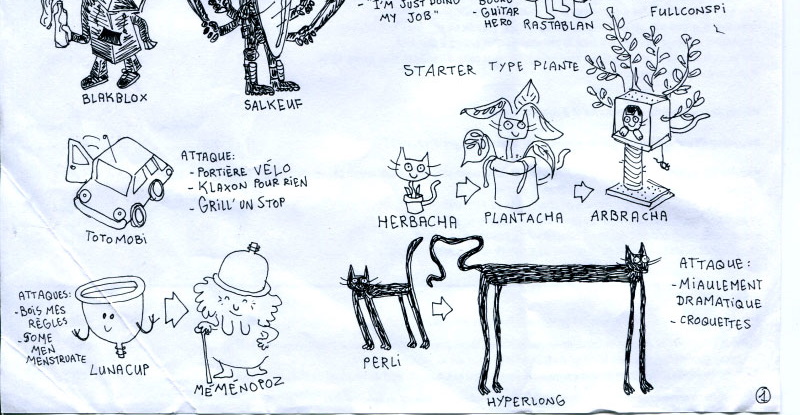 - "I'M JUST DOING
MY JOB"
- GUITAR
HERO
RASTABLAN
FULLCONSPI
BLAKBLOX
SALKEUF
STARTER TYPE PLANTE
ATTAQUE:
- PORTIÈRE VÉLO
- KLAXON POUR RIEN
- GRILL' UN STOP
TOTOMOBI
HERBACHA
PLANTACHA
ARBRACHA
ATTAQUES:
- BOIS MES
RÈGLES
- SOME
MEN
MENSTRUATE
LUNACUP
MÉMÉNOPOZ
PERLI
HYPERLONG
ATTAQUE:
- MIAULEMENT
DRAMATIQUE
- CROQUETTES
1